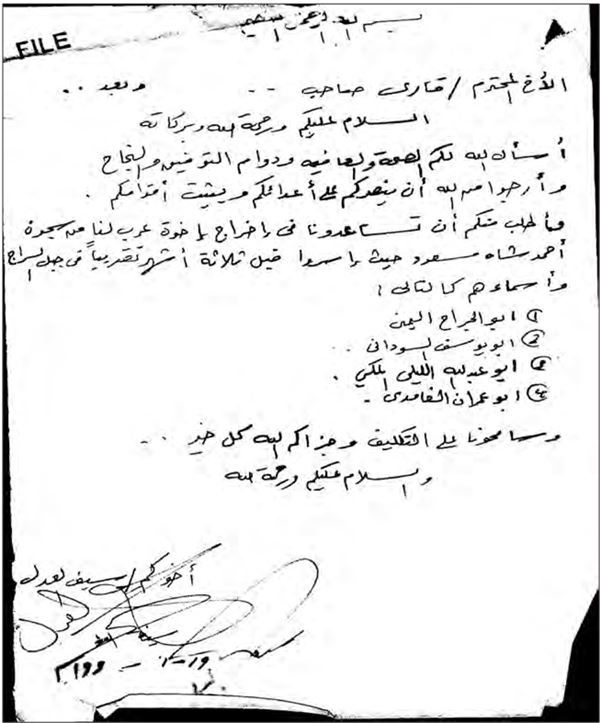 بسم الله الرحمن الرحيم
FILE
الأخ المحترم / قارى صاحب - - وبعد ..
السلام عليكم ورحمة الله وبركاته
أسأل الله لكم الصحة والعافيه ودوام التوفيق والنجاح
وأرجوا من الله أن ينصركم على أعدائكم ويثبت أقدامكم .
وأطلب منكم أن تساعدونا فى إخراج إخوة عرب لنا من سجون
أحمد شاه مسعود حيث إسروا قبل ثلاثة أشهر تقريباً فى جبل السراج
وأسماءهم كالتالى :
① ابو الجراح اليمنى
② ابو يوسف السودانى .
③ ابو عبد الله الليبى المكي .
④ ابو عمران الغامدى -
وسامحونا على التكليف وجزاكم الله كل خير . . -
والسلام عليكم ورحمة الله
أخوكم / سيف لعدل